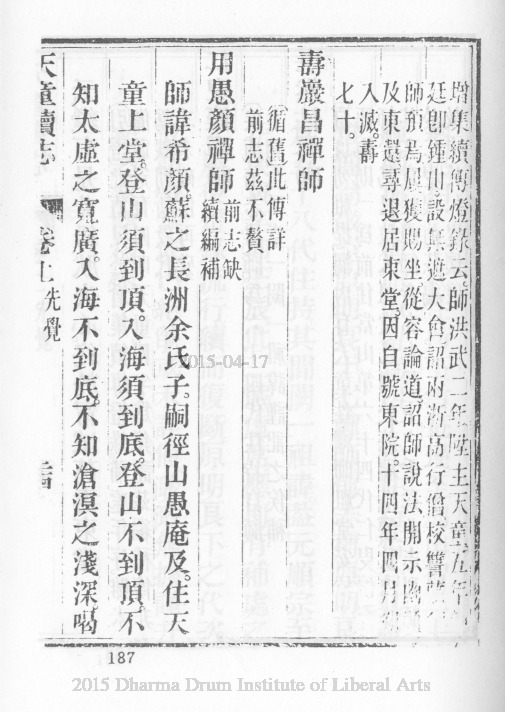 增集續傳燈錄云。師洪武二年。陞主天童。五年
廷卽鍾山。設無遮大會。詔兩浙高行僧校讐藏
師預焉。屢獲賜坐。從容論道。詔師說法開示幽
及東還。尋退居東堂。因自號東院。十四年四月
入滅。壽
七十。
壽巖昌禪師
（循舊此傳詳
前志茲不贅
用愚顏禪師前志缺
續編補
師諱希顏。蘇之長洲余氏子。嗣徑山愚庵及。住天
童上堂。登山須到頂。入海須到底。登山不到頂。不
知太虛之寬廣。入海不到底。不知滄溟之淺深。喝
天童續志 卷上 先覺
2015-04-17
187
2015 Dharma Drum Institute of Liberal Arts